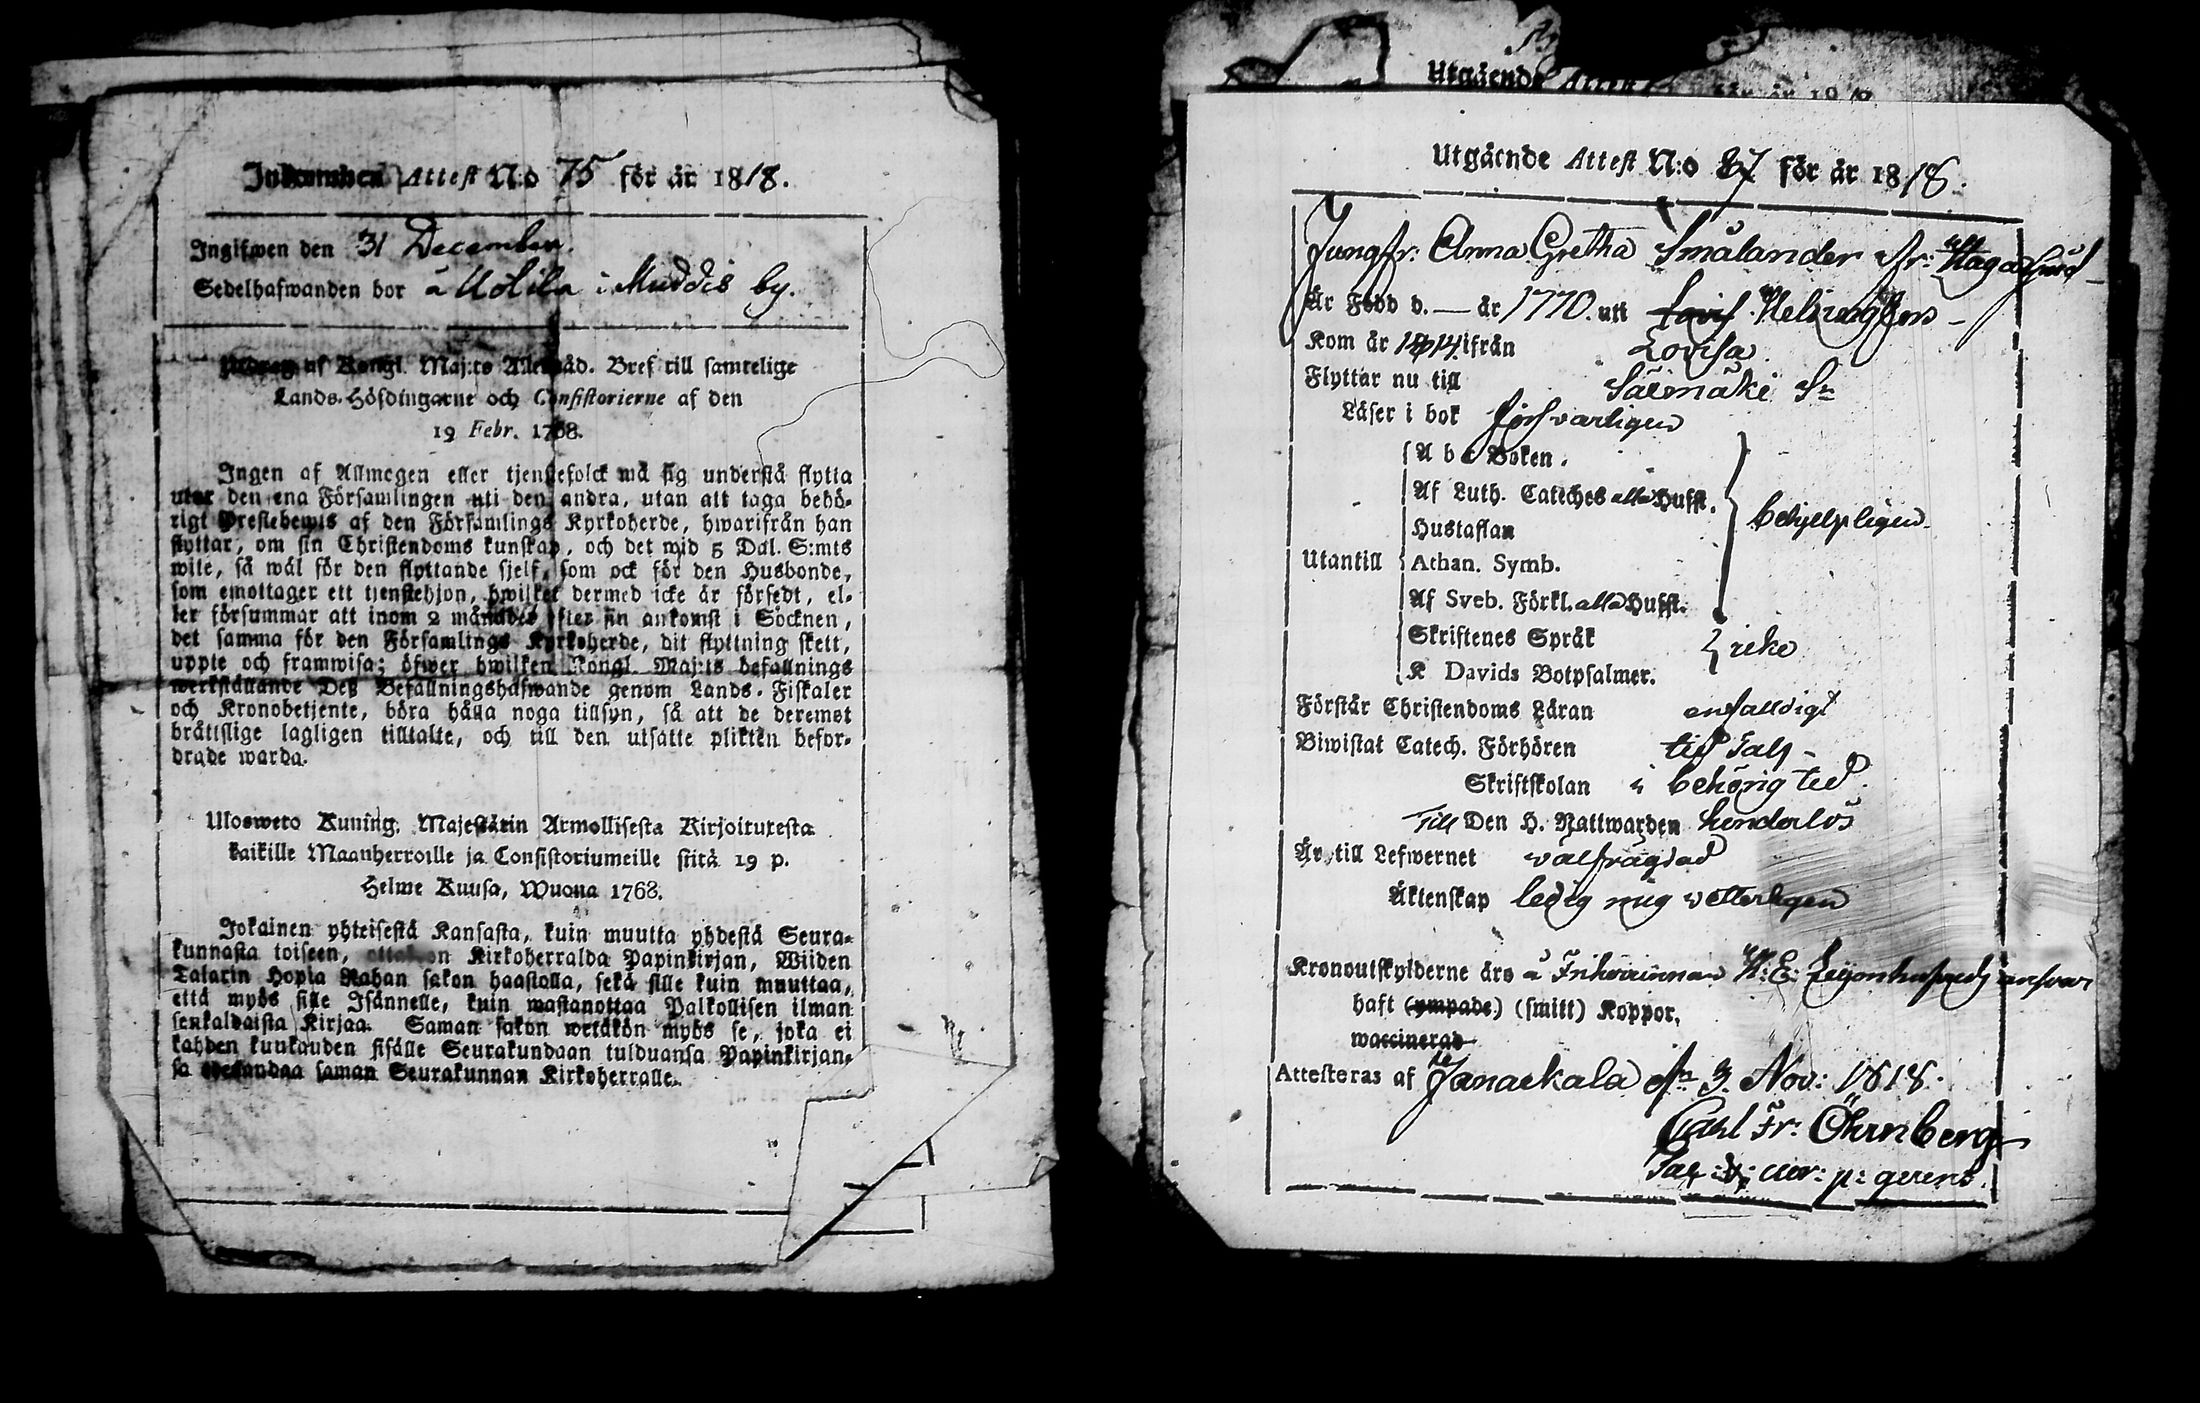 Inkommen Attest N:o 75 för år 1818.
Ingifwen den 31 December.
Sedelhafwanden bor å Uotila i Muddis by.
Utdrag af Kongl. Maj:ts Allernåd. Bref till samtelige
Lands-Höfdingarne och Consistorierne af den
19 Febr. 1768.
Ingen af Allmogen eller tjenstefolck må sig understå flytta
utur den ena Församlingen uti den andra, utan att taga behö-
rigt Prestebewis af den Församlings Kyrkoherde, hwarifrån han
flyttar, om sin Christendoms kunskap, och det wid 5 Dal. S:mts
wite, så wäl för den flyttande sjelf, som ock för den Husbonde,
som emottager ett tjenstehjon, hwilket dermed icke är försedt, el-
ler försummar att inom 2 månader efter sin ankomst i Söcknen,
det samma för den Församlings Kyrkoherde, dit flyttning skett,
uppte och framwisa; öfwer hwilken Kongl. Maj:ts befallnings
werkställande Deß Befallningshafwande genom Lands-Fiskaler
och Kronobetjente, böra hålla noga tillsyn, så att de deremot
bråttslige lagligen tilltalte, och till den utsatte plikten befor-
drade warda.
Uloswero Kuning. Majestätin Armollisesta Kirjoituxesta
kaikille Maanherroille ja Consistoriumeille siitä 19 p.
Helme Kuusa, Wuona 1768.
Jokainen yhteisestä Kansasta, kuin muutta yhdestä Seura-
kunnasta toiseen, ottakoon Kirkoherralda Papinkirjan, Wiiden
Talarin Hopia Rahan sakon haastolla, sekä sille kuin muuttaa,
että myös sille Isännelle, kuin wastanottaa Palkollisen ilman
senkaldaista Kirjaa. Saman sakon wetäkön myös se, joka ei
kahden kuukauden sisälle Seurakundaan tulduansa Papinkirjan-
sa saman Seurakunnan Kirkoherralle.
Utgående Attest
Utgående Attest N:o 27 för år 1818.
Jungfr: Anna Gretha Smålander fr: Haga
Är Född d. — år 1770. uti Lovis Helsingfors –
Kom år 1814 ifrån Lovisa
Flyttar nu till Säemäki Sn
Läser i bok försvarligen
A b c Boken.
Af Luth. Cateches alla Hufst.
Hustaflan
behjelpligen
Utantill Athan. Symb.
Af Sveb. Förkl. alla Hufst.
Skriftenes Språk
icke
K Davids Botpsalmer.
Förstår Christendoms Läran enfaldigt
Biwistat Catech. Förhören
Skriftskolan i behörig tid.
Till Den H. Nattwarden hinderlös
Är till Lefwernet välfrägdad
Äktenskap ledig mig vetterligen
Kronoutskylderne äro å Friherrinnan H: E: Leijonhufvuds ansvar
haft (ympade) (smitt) Koppor.
waccinerad
Attesteras af Janackala d. 3 Nov: 1818.
Carl Fr: Öhrnberg